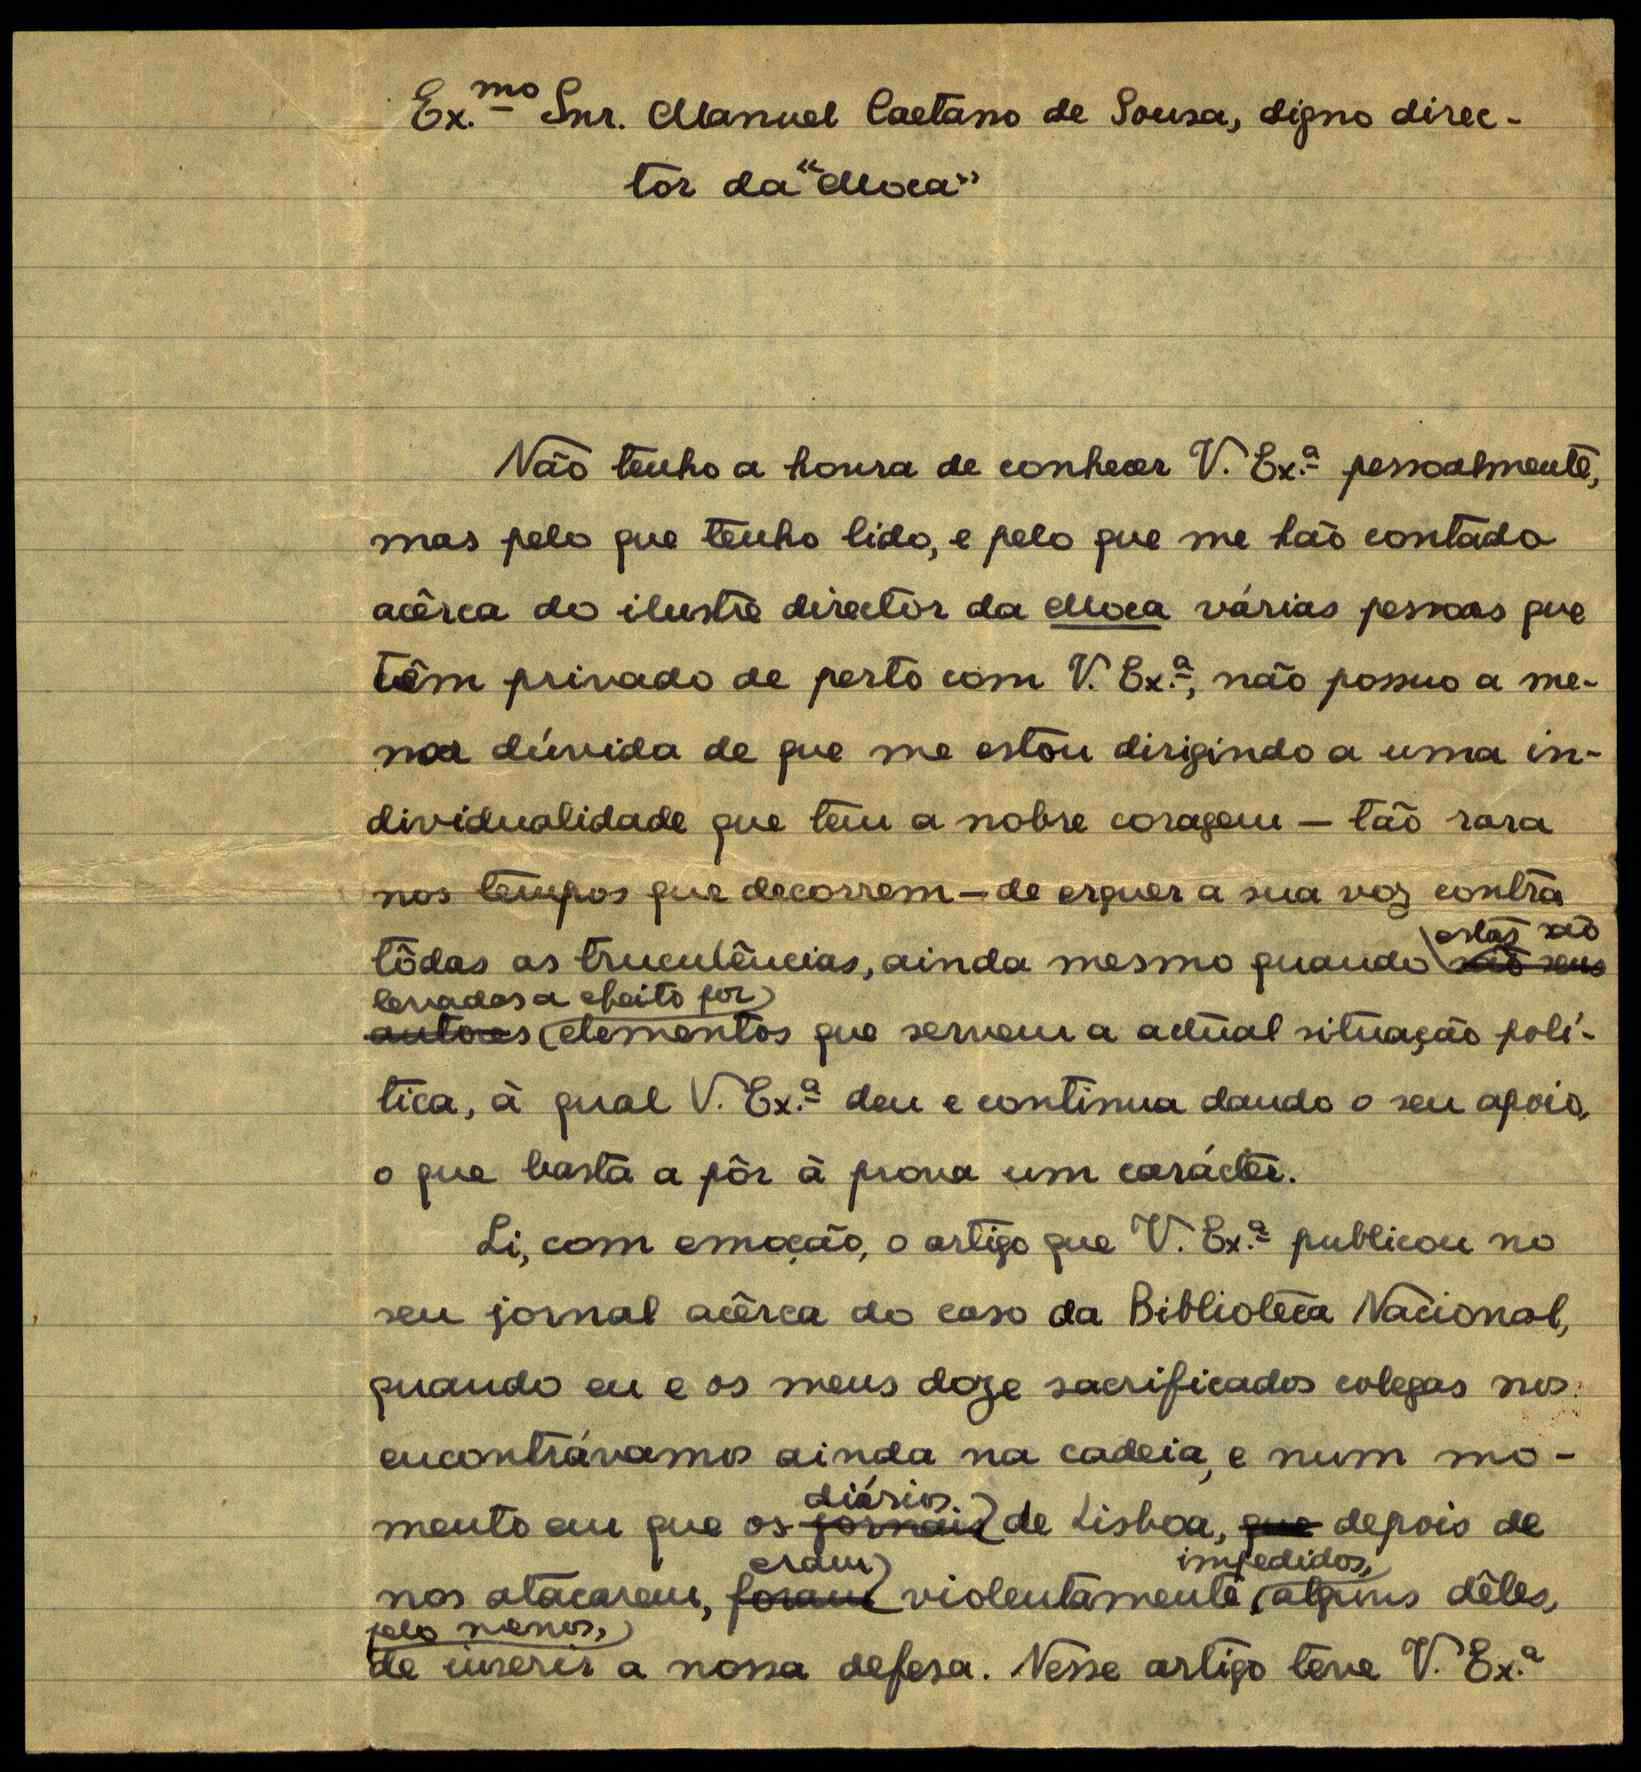 Ex.mo Snr. Manuel Caetano de Sousa, digno direc-
tor da "Moca"
Não tenho a honra de conhecer V. Ex.ª pessoalmente,
mas pelo que tenho lido, e pelo que me hão contado
acêrca do ilustre director da Moca várias pessoas que
têm privado de perto com V. Ex.ª, não possuo a me-
nor dúvida de que me estou dirigindo a uma in-
dividualidade que tem a nobre coragem — tão rara
nos tempos que decorrem — de erguer a sua voz contra
estas são
tôdas as truculências, ainda mesmo quando são seus
levadas a efeito por
autores elementos que servem a actual situação polí-
tica, à qual V. Ex.ª deu e continua dando o seu apoio,
o que basta a pôr à prova um carácter.
Li, com emoção, o artigo que V. Ex.ª publicou no
seu jornal acêrca do caso da Biblioteca Nacional,
quando eu e os meus doze sacrificados colegas nos
encontrávamos ainda na cadeia, e num mo-
diários
mento em que os jornais de Lisboa, que depois de
eram impedidos,
nos atacarem, foram violentamente alguns dêles,
pelo menos,
de inserir a nossa defesa. Nesse artigo teve V. Ex.ª